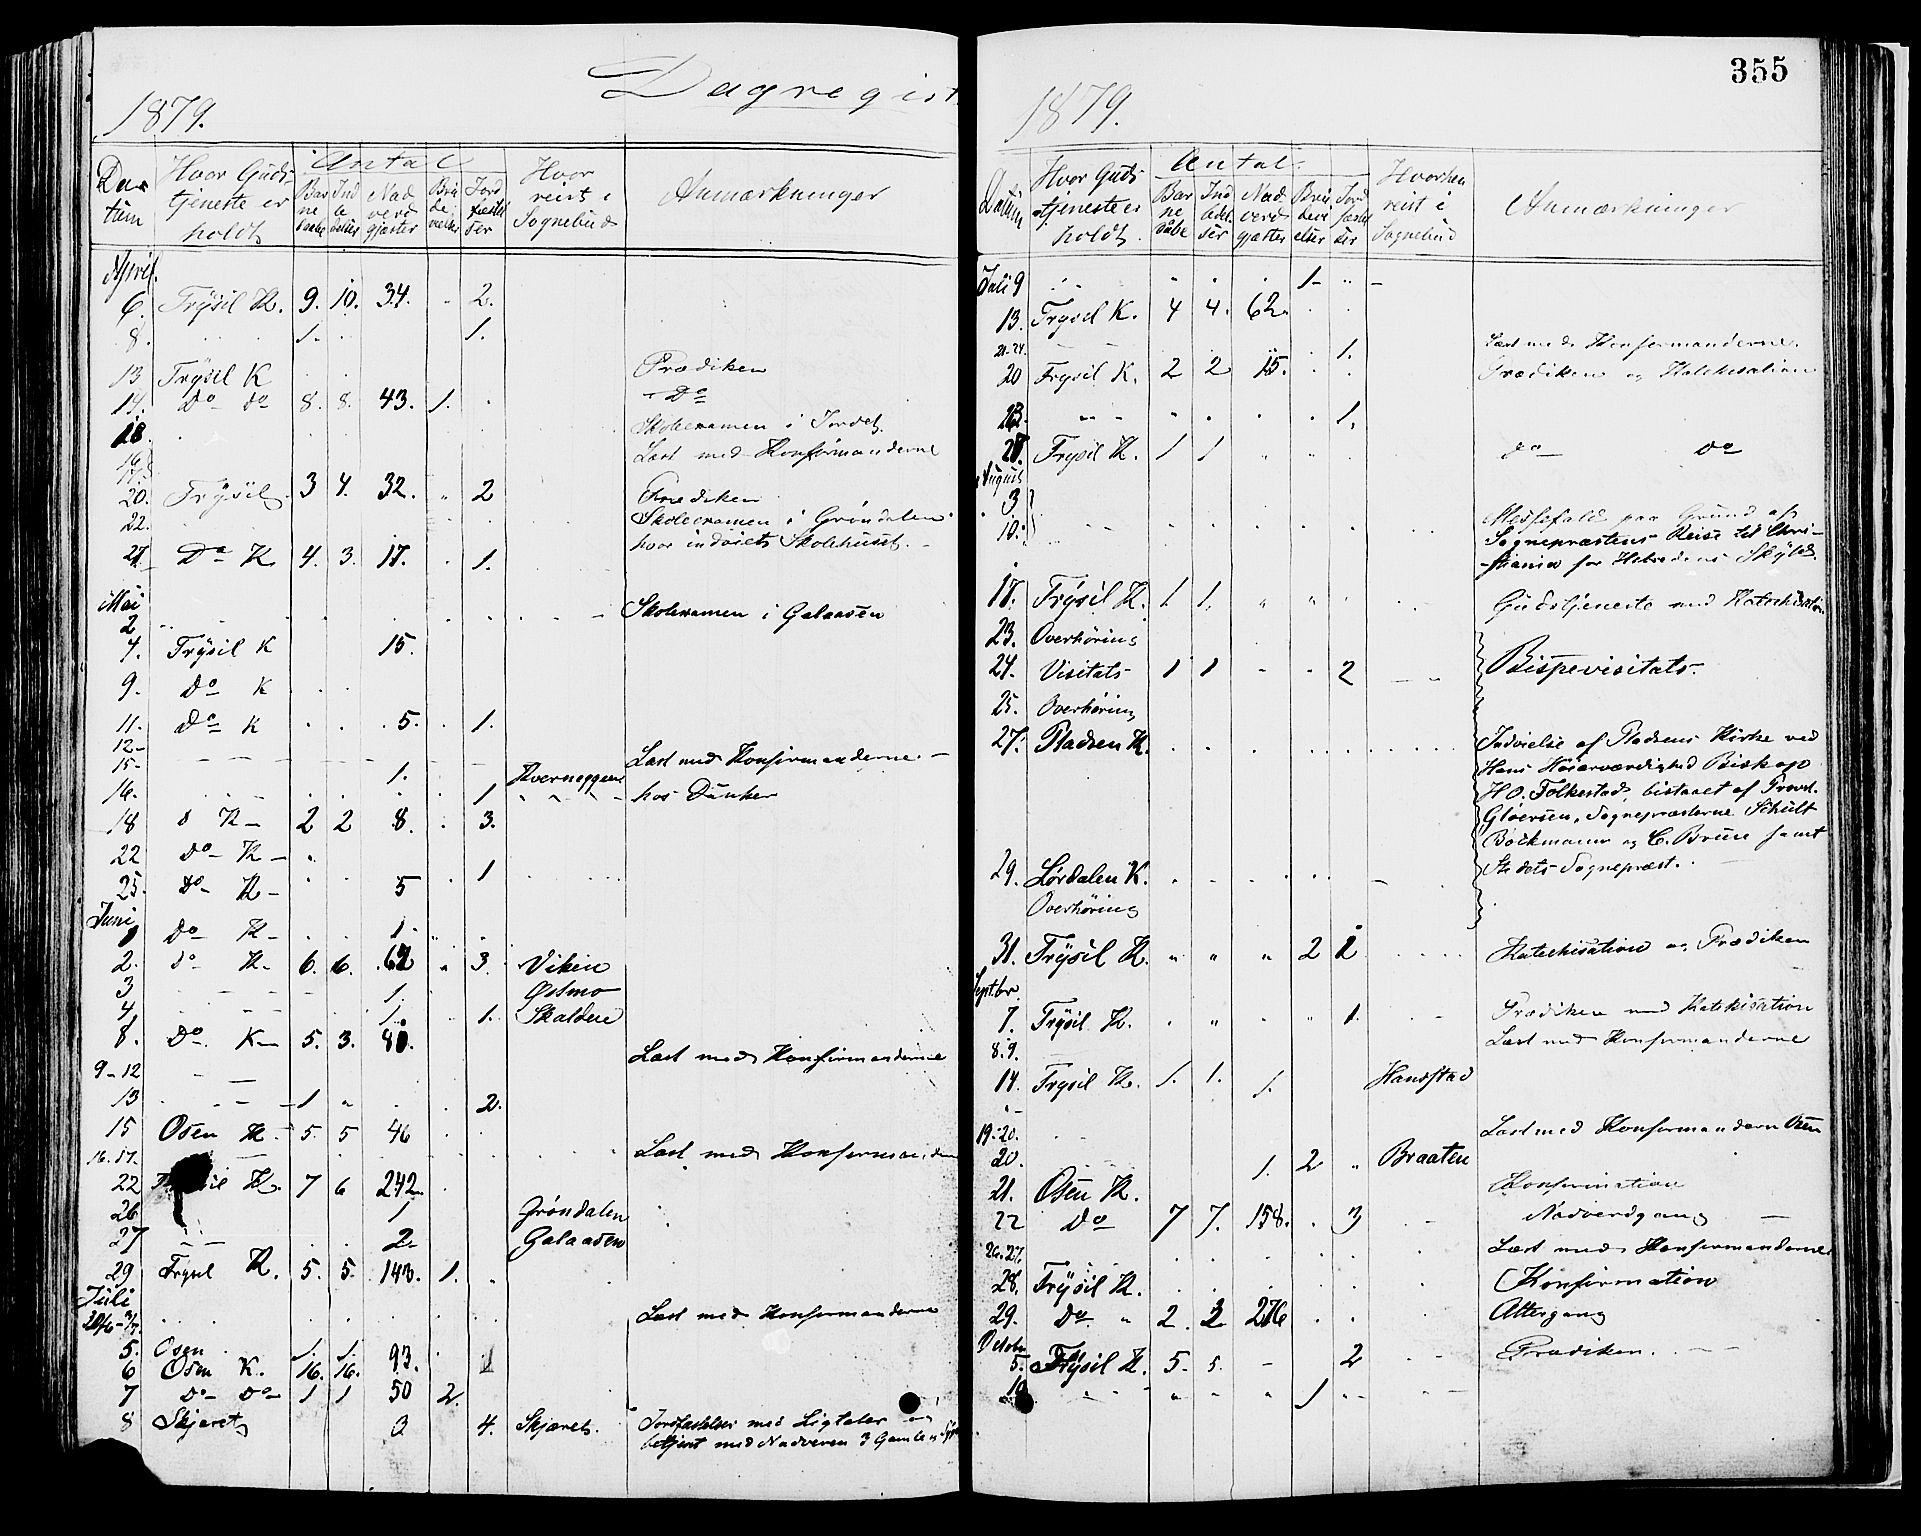 355
Dagregist
1879.
Datum Hvor Gudstjeneste er holdt Antal Hvor reist i Sognebud Anmærkninger
April
6. Trysil K. 9. 10. 34. 2.
8. 1. 1.
13 Trysil K Prædiken
14. Do do 8. 8. 43. 1. Do
18 Skoleexamen i Jordet
Læst med Konfirmanderne
20. Trysil 3 4. 32. 2 Prædiken
22. Skoleexamen i Gröndalen
hvor indviets Skolehuset.
27 Do K 4. 3. 17. 1.
Mai
2 Skolexamen i Galaasen
4. Trysil K 15.
9. Do K
11. Do K 5. 1.
12-
15- Læst med Konfirmanderne
16. 1. 1 hos Dunker
18 K 2 2 8. 3.
22 Do K 1
25. Do K 5
Juni
1 Do K 1
2. Do K. 6. 6. 62 3. Viken
3 1. Østmo
4. 1. 1. Skalden
8. Do K 5. 3. 40.
9-12 Læst med Konfirmanderne
13 1 2.
15 Osen K 5. 5 46
16.17. Læst med Konfirmanden
22 K. 7 6 242.
26 1 Grøndalen
27 2 Galaasen
29 Trysil K. 5. 5. 143. 1.
Juli Læst med Konfirmanderne
5. Osen 1. 1. 93.
6 Osen K. 16. 16.
7 Do Do 1 1 50 2.
8 Skjæret 3 4. Skjæret. Jordfæstelser med Ligtaler og
betjent med Nadveren 3 Gamle
1879.
Datum Hvor Gudstjeneste er holdt. Antal. Hvorhen reist i Sognebud Anmærkninger
Juli 9 1
13. Trysil K. 4 4. 62.
21-24. 1. Læst med Konfirmanderne.
20 Trysil K. 2 2 15. Prædiken og Katekisation
23. 1.
27 Trysil K. 1 1 do do
August
3
10. Messefald paa Grund af
Sognepræstens Reise til Chri-
stiania for Helbredens Skyld.
17. Trysil K. 1. 1. Gudstjeneste med Katechisation
23. Overhøring
24. Visitats 1 1 2 Bispevisitats.
25. Overhøring
27. Pladsen K. Indvielse af Pladsens Kirke ved
Hans Høiærværdighed Biskop
H. O. Folkestad, bistaaet af Provst
Gløersen, Sognepræsterne Schult
Böckmann og C. Bruun samt
Stedets Sognepræst.
29. Lørdalen K.
Overhøring
31. Trysil K. 2 2 Katechisation og Prædiken
Septbr
7. Trysil K. 1. Prædiken med Katekisation
8.9. Læst med Konfirmanderne
14. Trysil K. 1. 1. 1. Hansstad
19.-20. Læst med Konfirmandern Osen
20. 1. 2 Braaten
21. Osen K. Konfirmation
22 Do 7 7. 158. 3 Nadverdgang
26.27. Læst med Konfirmanderne
28. Trysil K. Konfirmation
29. Do 2. 2. 276 Altergang
October
5. Trysil K. 5. 5. 2 Prædiken.
1